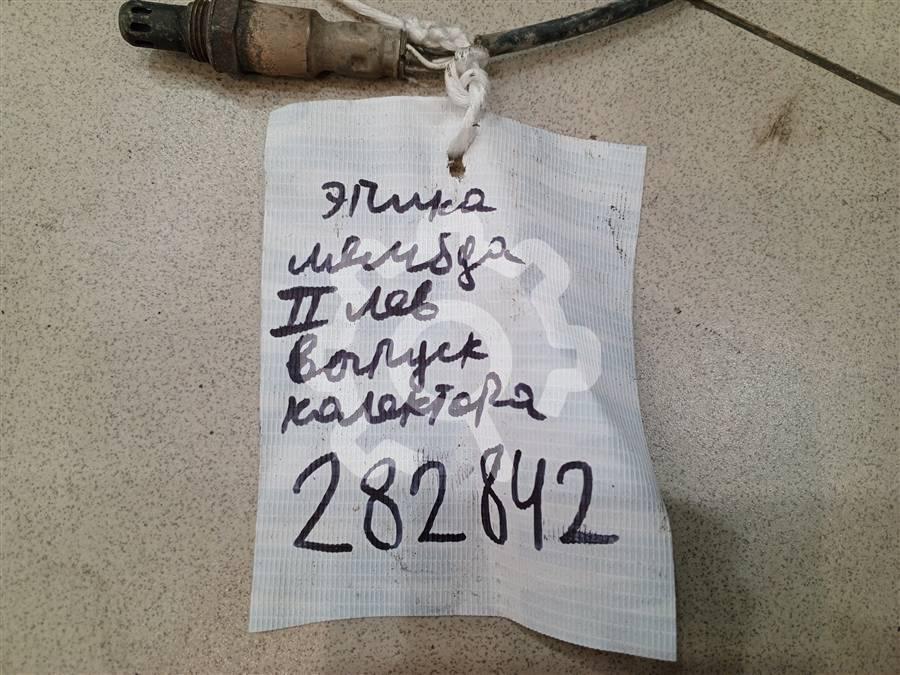 эпика
лямбда
II лев
выпуск
колектора
282842